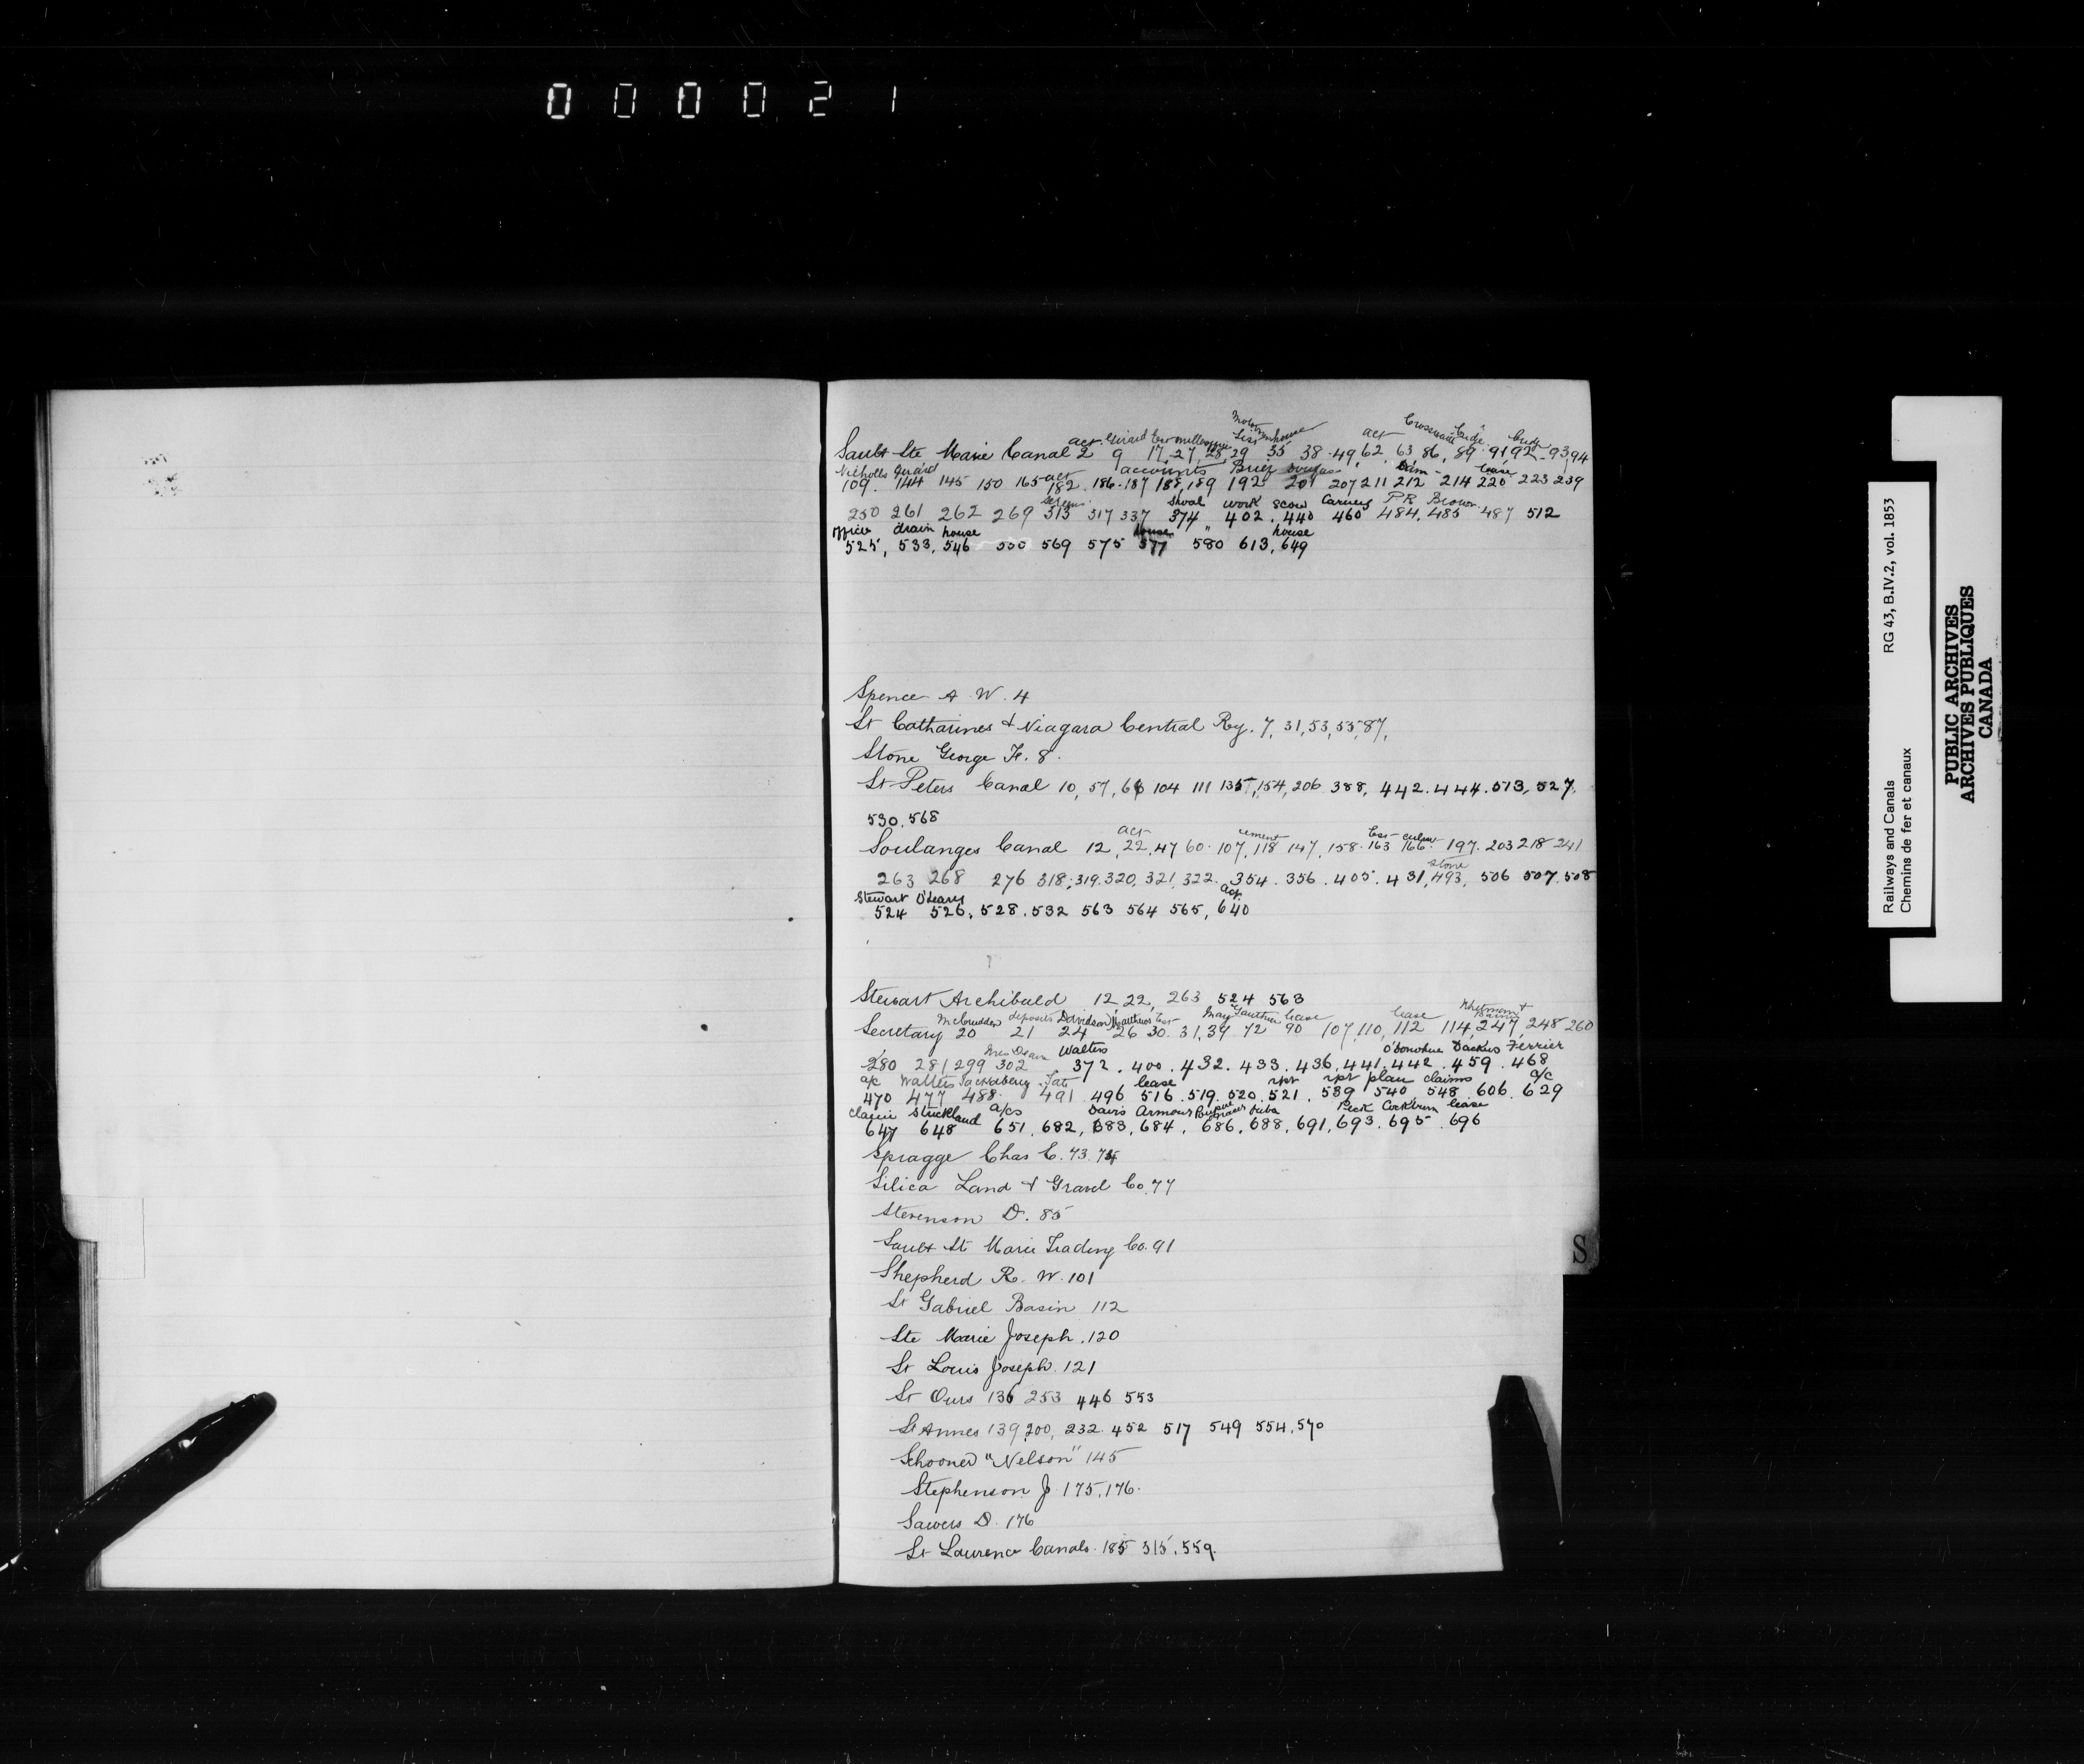 000021
Sault Ste Marie Canal 2 9 17, 27, 28, 29 35 38 49 62, 63 86, 89 91, 92 93 94
act Girard act
Nicholls Girard act accounts lease
109. 144 145 150 165 182. 186. 187 188, 189 192 201 207 211 212 214 220 223 239
Shoal work scow P R Brown
250 261 262 269 313 317 337 374 402. 440 460 484. 485 487 512
office drain house house " house
525, 533, 546 550 569 575 577 580 613, 649
Spence A. W. 4
St Catharines & Niagara Central Ry. 7, 31, 53, 55, 87,
Stone George F. 8.
St Peters Canal 10, 57, 104 111 135, 154, 206 388, 442. 444. 513, 527.
530. 568
act cement
Soulanges Canal 12, 22, 47 60. 107, 118 147, 158. 163 166. 197. 203 218 241
stone
263 268 276 318; 319. 320, 321, 322. 354. 356. 405. 431, 493, 506 507. 508
Stewart O'Leary act.
524 526, 528. 532 563 564 565, 640
Stewart Archibald 12 22, 263 524 563
deposits Davidson May Gauthier lease lease
Secretary 20 21 24 26 30. 31, 39 72 90 107, 110, 112 114, 247, 248 260
Walters O'Donohue Backus Ferrier
280 281 299 302 372. 400. 432. 433. 436. 441. 442. 459. 468
a/c Walters lease rpr rpr plan claims a/c
470 477 488. 491 496 516. 519. 520. 521. 539 540 548 606. 629
claim Strickland a/cs Davis Armour Peck Cockburn lease
647 648 651, 682, 683, 684, 686, 688, 691, 693. 695. 696
Spragge Chas C. 73. 74
Silica Land & Gravel Co. 77
Stevenson D. 85
Sault St Marie Trading Co. 91
Shepherd R. W. 101
St Gabriel Basin 112
Ste Marie Joseph. 120
St Louis Joseph. 121
St Ours 136 253 446 553
St Annes 139, 200, 232. 452 517 549 554. 570
Schooner "Nelson" 145
Stephenson J. 175. 176.
Sawers D. 176
St Laurence Canals. 185 515. 559.
S
Railways and Canals RG 43, B.IV.2, vol. 1853
Chemins de fer et canaux
PUBLIC ARCHIVES
ARCHIVES PUBLIQUES
CANADA